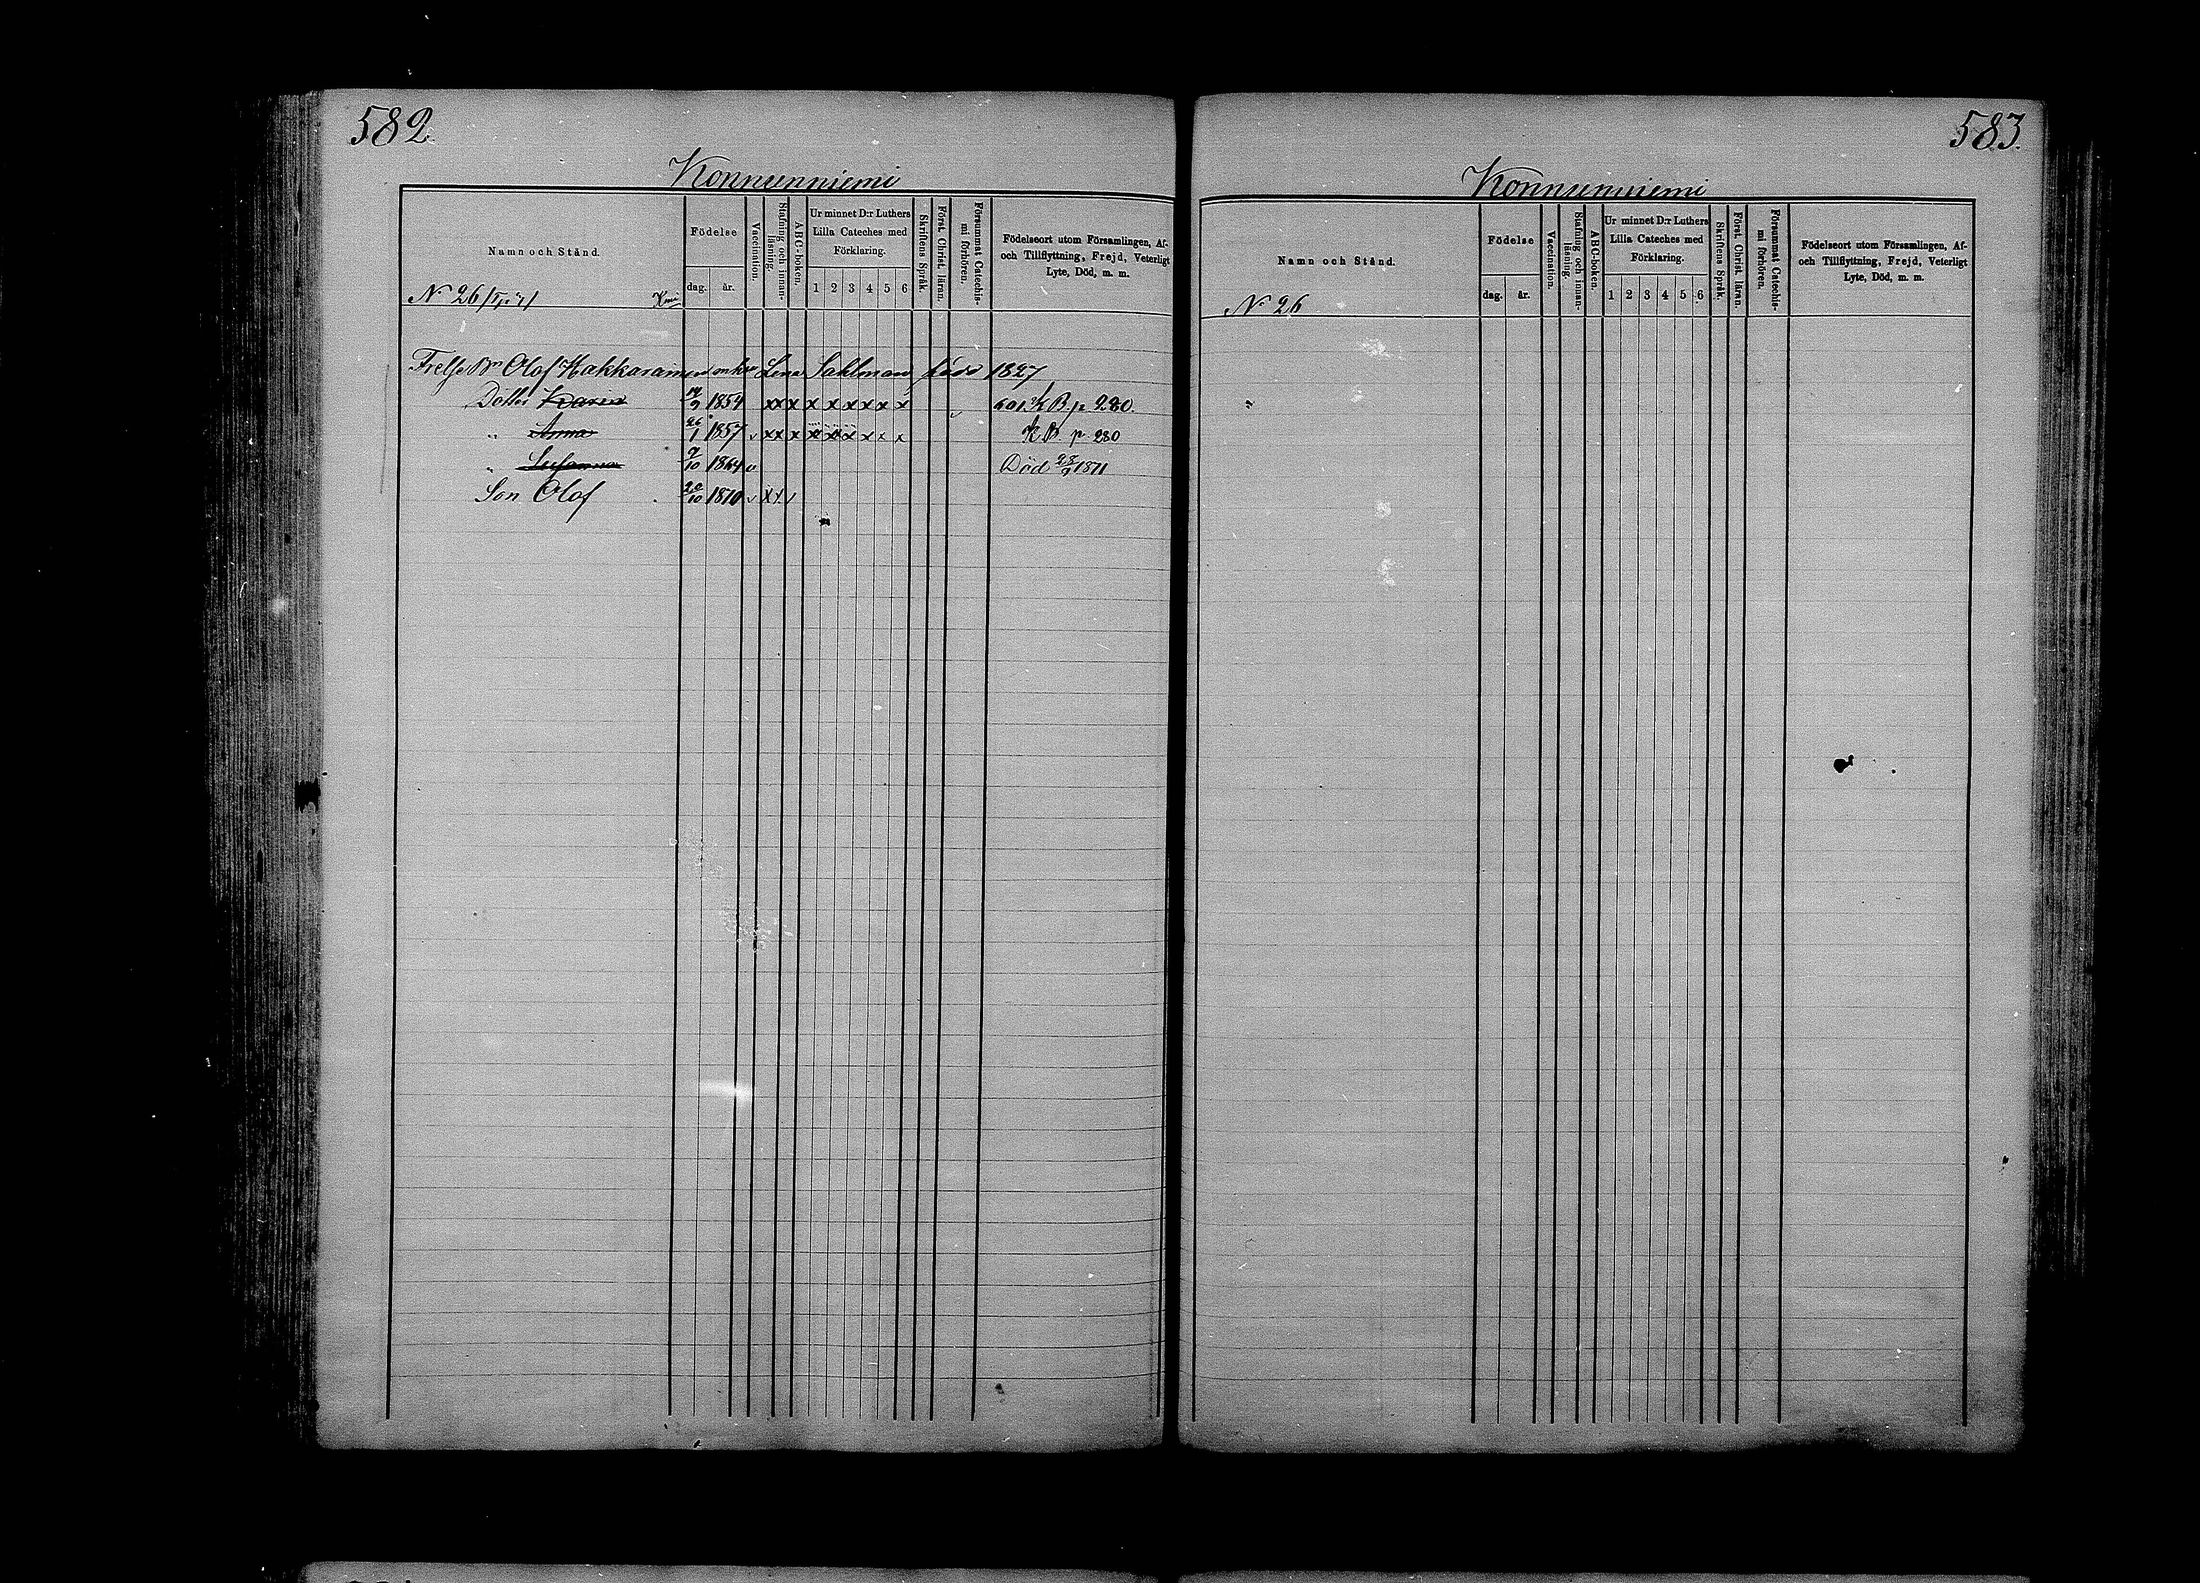 582.
Konnunniemi
Namn och Stånd.
Födelse
dag. år.
Vaccination.
Stafning och innan-läsning.
ABC-boken.
Ur minnet D:r Luthers Lilla Cateches med Förklaring.
1 2 3 4 5 6
Skriftens Språk.
Först. Christ. läran.
Försummat Catechis-mi förhören.
Födelseort utom Församlingen, Af-
och Tillflyttning, Frejd, Veterligt
Lyte, Död, m. m.
N:o 26
Frelse Bn Olof Hakkarainen enka Lena Sahlman född 1827
Dotter Maria 14/9 1854 xx x x x x x x x K B. p 280.
" Anna 26/1 1857 v xx x x x x x x x K B. p 280
" Susanna 9/10 1864 v Död 28/9 1871
Son Olof 20/10 1870 v xx /
583.
Konnunniemi
Namn och Stånd.
Födelse
dag. år.
Vaccination.
Stafning och innan-läsning.
ABC-boken.
Ur minnet D:r Luthers
Lilla Cateches med
Förklaring.
1 2 3 4 5 6
Skriftens Språk.
Först. Christ. läran.
Försummat Catechis-mi förhören.
Födelseort utom Församlingen, Af-
och Tillflyttning, Frejd, Veterligt
Lyte, Död, m. m.
N:o 26